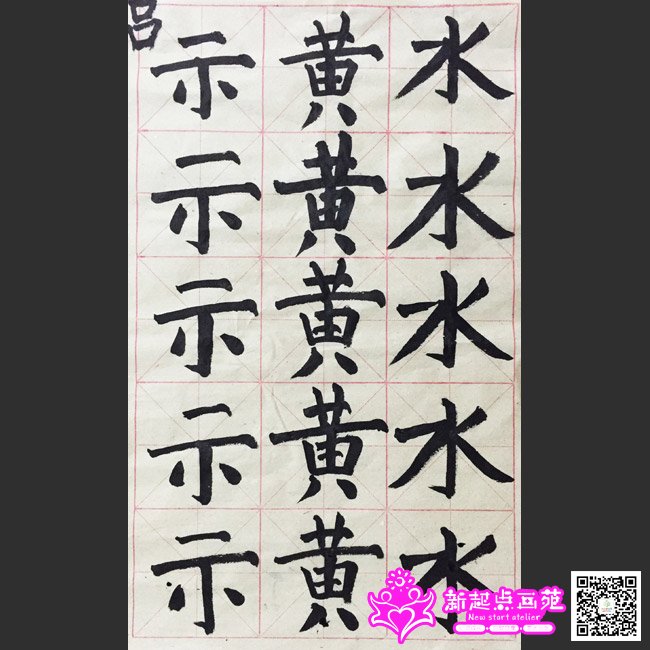 水水水水水
黄黄黄黄黄
示示示示示
新起点画苑
New start atelier